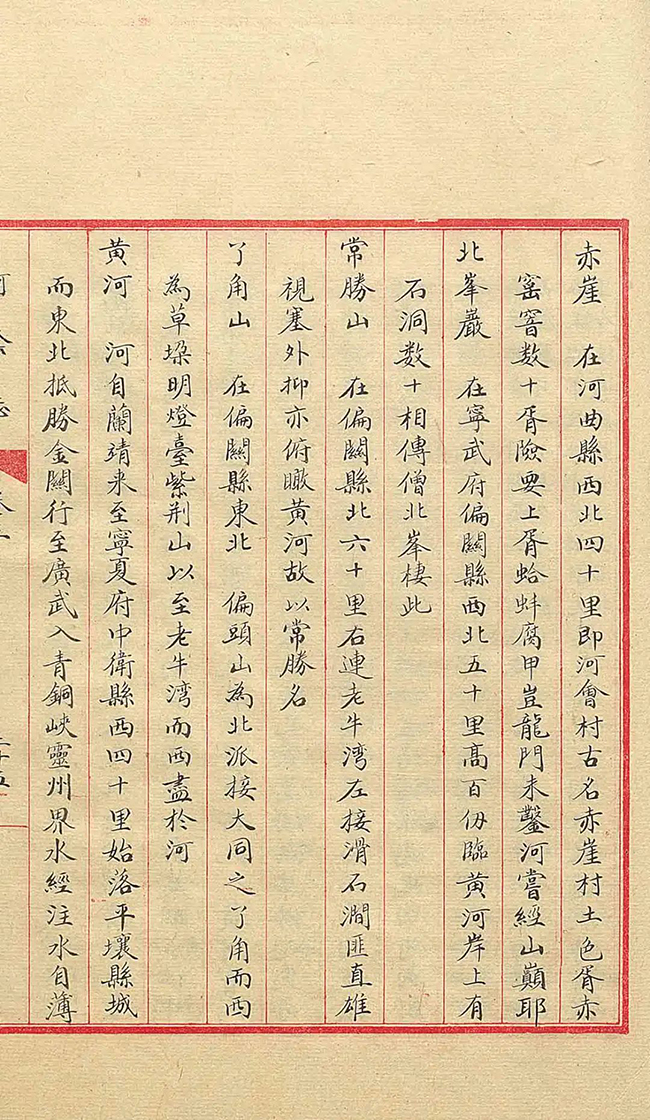 赤崖　在河曲縣西北四十里即河會村古名赤崖村土色胥赤
窰窨数十胥險要上胥蛤蚌腐甲豈龍門未鑿河嘗經山巔耶
北峯巖　在寧武府偏關縣西北五十里高百仞臨黄河岸上有
石洞数十相傳僧北峯棲此
常勝山　在偏關縣北六十里右連老牛湾左接滑石澗匪直雄
視塞外抑亦俯瞰黄河故以常勝名
了角山　在偏關縣東北　偏頭山為北派接大同之了角而西
為草垜明燈臺紫荆山以至老牛湾而西盡於河
黄河　河自蘭靖来至寧夏府中衛縣西四十里始落平壤縣城
而東北抵勝金關行至廣武入青銅峽靈州界水經注水自薄